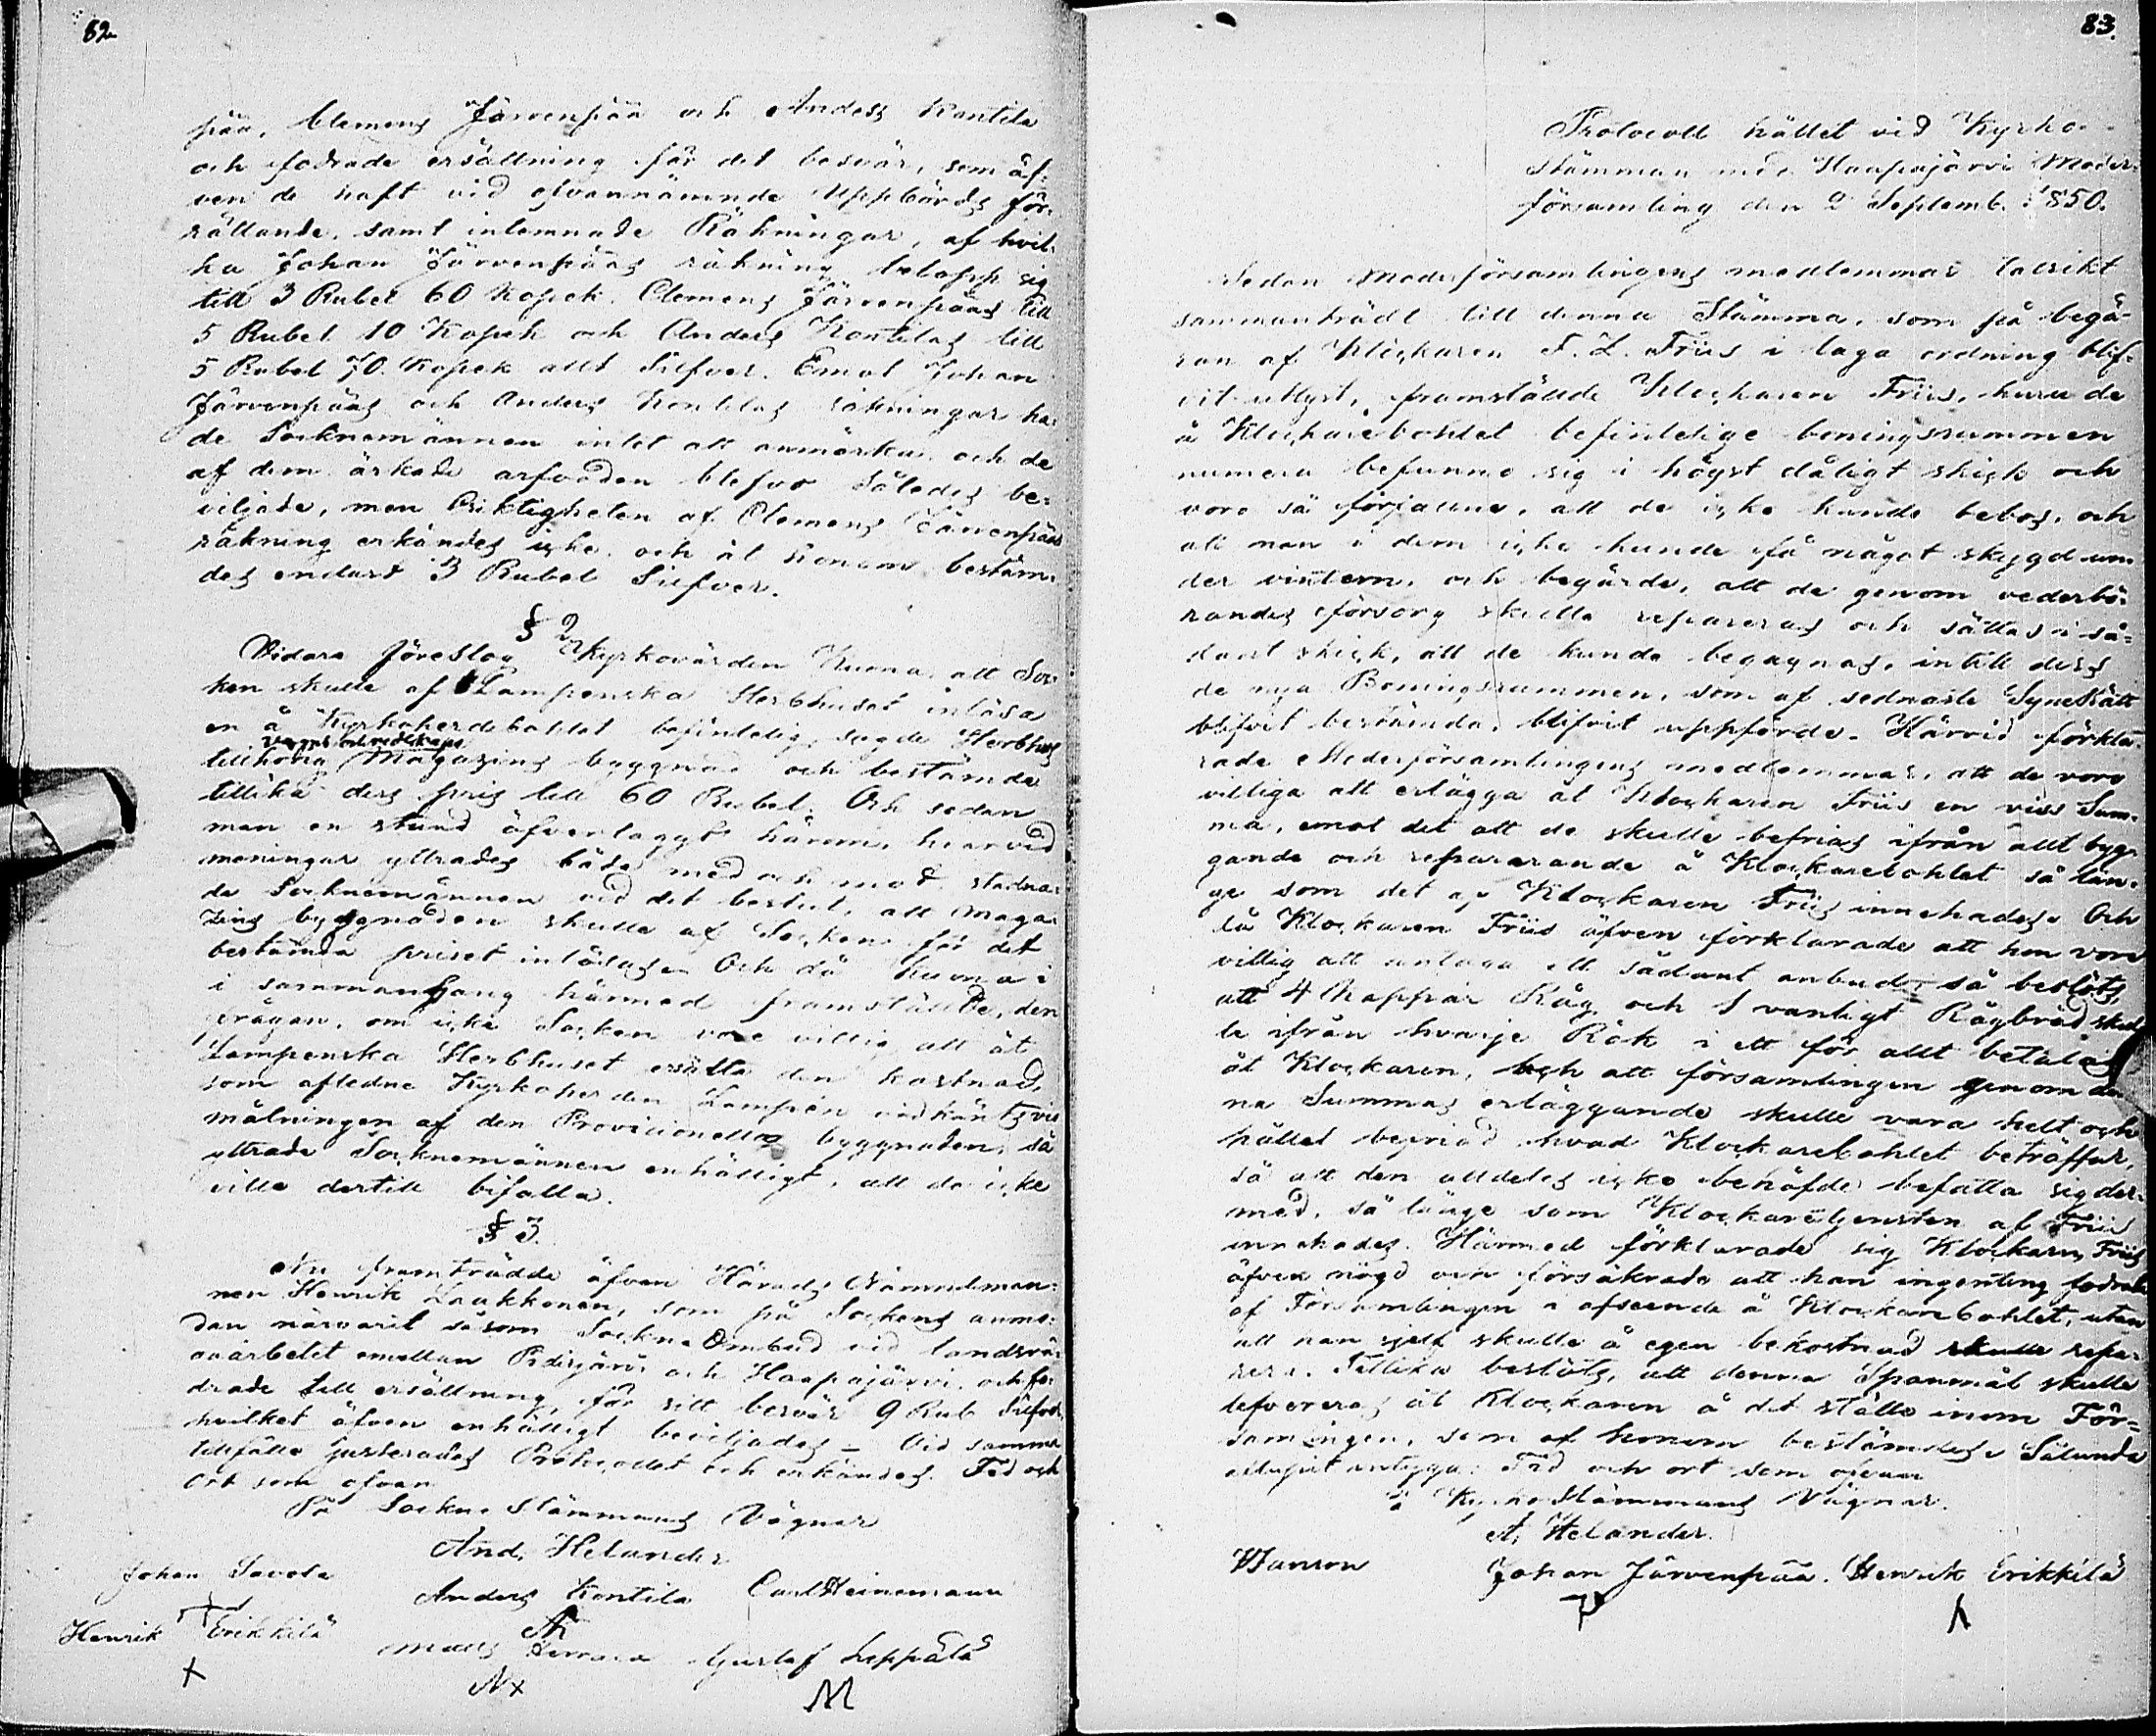 82
pää, Clemens Järvenpää och Anders Kontila
och fodrade ersättning för det besvär, som äf-
ven de haft vid ofvannämnde Uppbörds för-
rättande, samt inlemnade Räkningar, af hvil-
ka Johan Järvenpääs räkning belopp sig
till 3 Rubel 60 Kopek. Clemens Järvenpääs till
5 Rubel 10 Kopek och Anders Kontilas till
5 Rubel 70 Kopek allt Silfver. Emot Johan
Järvenpääs och Anders Kontilas räkningar ha-
de Socknemännen intet att anmärka och de
af dem äskade arfvoden blefvo således be-
viljade, men Riktigheten af Clemens Järvenpääs
räkning erkändes icke och åt honom bestäm-
des endast 3 Rubel Silfver.
§ 2
Vidare föreslog Kyrkovärden Kuona att Soc-
ken skulle af Lampenska Sterbhuset inlösa
en å Kyrkoherdebohlet befintelig sagde Sterbhus
tillhörig Magazins byggnad och bestämde
tillika dess pris till 60 Rubel. Och sedan
man en stund öfverlaggt härom, hvarvid
meningar yttrades både med och mot, stadna-
de Socknemännen vid det beslut, att Maga-
zins byggnaden skulle af Socken för det
bestämda priset inlösas. Och då Kuona i
i sammanhang härmed framställde, den
frågan, om icke Socken vore villig att åt
Lampenska Sterbhuset ersätta den kostnad,
som afledne Kyrkoherden Lampén vidkänts vid
målningen af den Provisionella byggnaden, så
yttrade Socknemännen enhälligt, att de icke
ville dertill bifalla.
§ 3.
Nu framträdde äfven Härads Nämndeman-
nen Henrik Laukkonen, som på Sockens anmo-
dan närvarit såsom Sockne Ombud vid landsvä-
gsarbetet emellan Pidisjärvi och Haapajärvi och fo-
drade till ersättning, för sitt besvär 9 Rub Silfver,
hvilket äfven enhälligt beviljades – Vid samma
tillfälle justerades Protocollet och erkändes. Tid och
Ort som ofvan
På Sockne Stämmans Vägnar
And. Helander
Johan Savola Anders Kontila Carl Heinemann
Henrik Erikkilä Matts Gustaf Leppälä
83.
Protocoll hållet vid Kyrko-
Stämman med Haapajärvi Moder-
församling den 2 Septemb. 1850.
Sedan Moderförsamlingens medlemmar talrikt
sammanträdt till denna Stämma, som på begä-
ran af Klockaren F. L. Friis i laga ordning blif-
vit utlyst, framställde Klockaren Friis, huru de
å Klockarebohlet befintelige boningsrummen
numera befunno sig i högst dåligt skick och
voro så förfallne, att de icke kunde bebos, och
att man i dem icke kunde få något skygd un-
der vintern, och begärde, att de genom vederbö-
randes försorg skulle repareras och sättas i så-
dant skick, att de kunde begagnas, intill dess
de nya Boningsrummen, som af sednaste SyneRätt
blifvit bestämda, blifvit uppförde. Härvid förkla-
rade Moderförsamlingens medlemmar, att de voro
villiga att erlägga åt Klockaren Friis en viss Sum-
ma, emot det att de skulle befrias ifrån allt byg-
gande och reparerande å Klockarebohlet så län-
ge som det af Klockaren Friis innehades. Och
då Klockaren Friis äfven förklarade att han vore
villig att antaga ett sådant anbud – så beslöts,
att 4 Kappar Råg och 1 vanligt Rågbröd skul-
le ifrån hvarje Rök i ett för allt betalas
åt Klockaren, och att församlingen genom den-
na Summas erläggande skulle vara helt och
hållet befriad hvad Klockarebohlet beträffar,
så att den alldeles icke behöfde befatta sig der-
med, så länge som Klockaretjensten af Friis
innehades. Härmed förklarade sig Klockaren Friis
äfven nögd och försäkrade att han ingenting fodrade
af Församlingen i afseende å Klockarebohlet, utan
att han sjelf skulle å egen bekostnad skulle repa-
rera. Tillika beslöts, att denna Spanmål skulle
lefvereras åt Klockaren å det ställe inom För-
samlingen, som af honom bestämdes. Sålunda
aflupit intyga. Tid och ort som ofvan
På Kyrko Stämmans Vägnar.
A. Helander.
Johan Järvenpää. Henrik Erikkilä